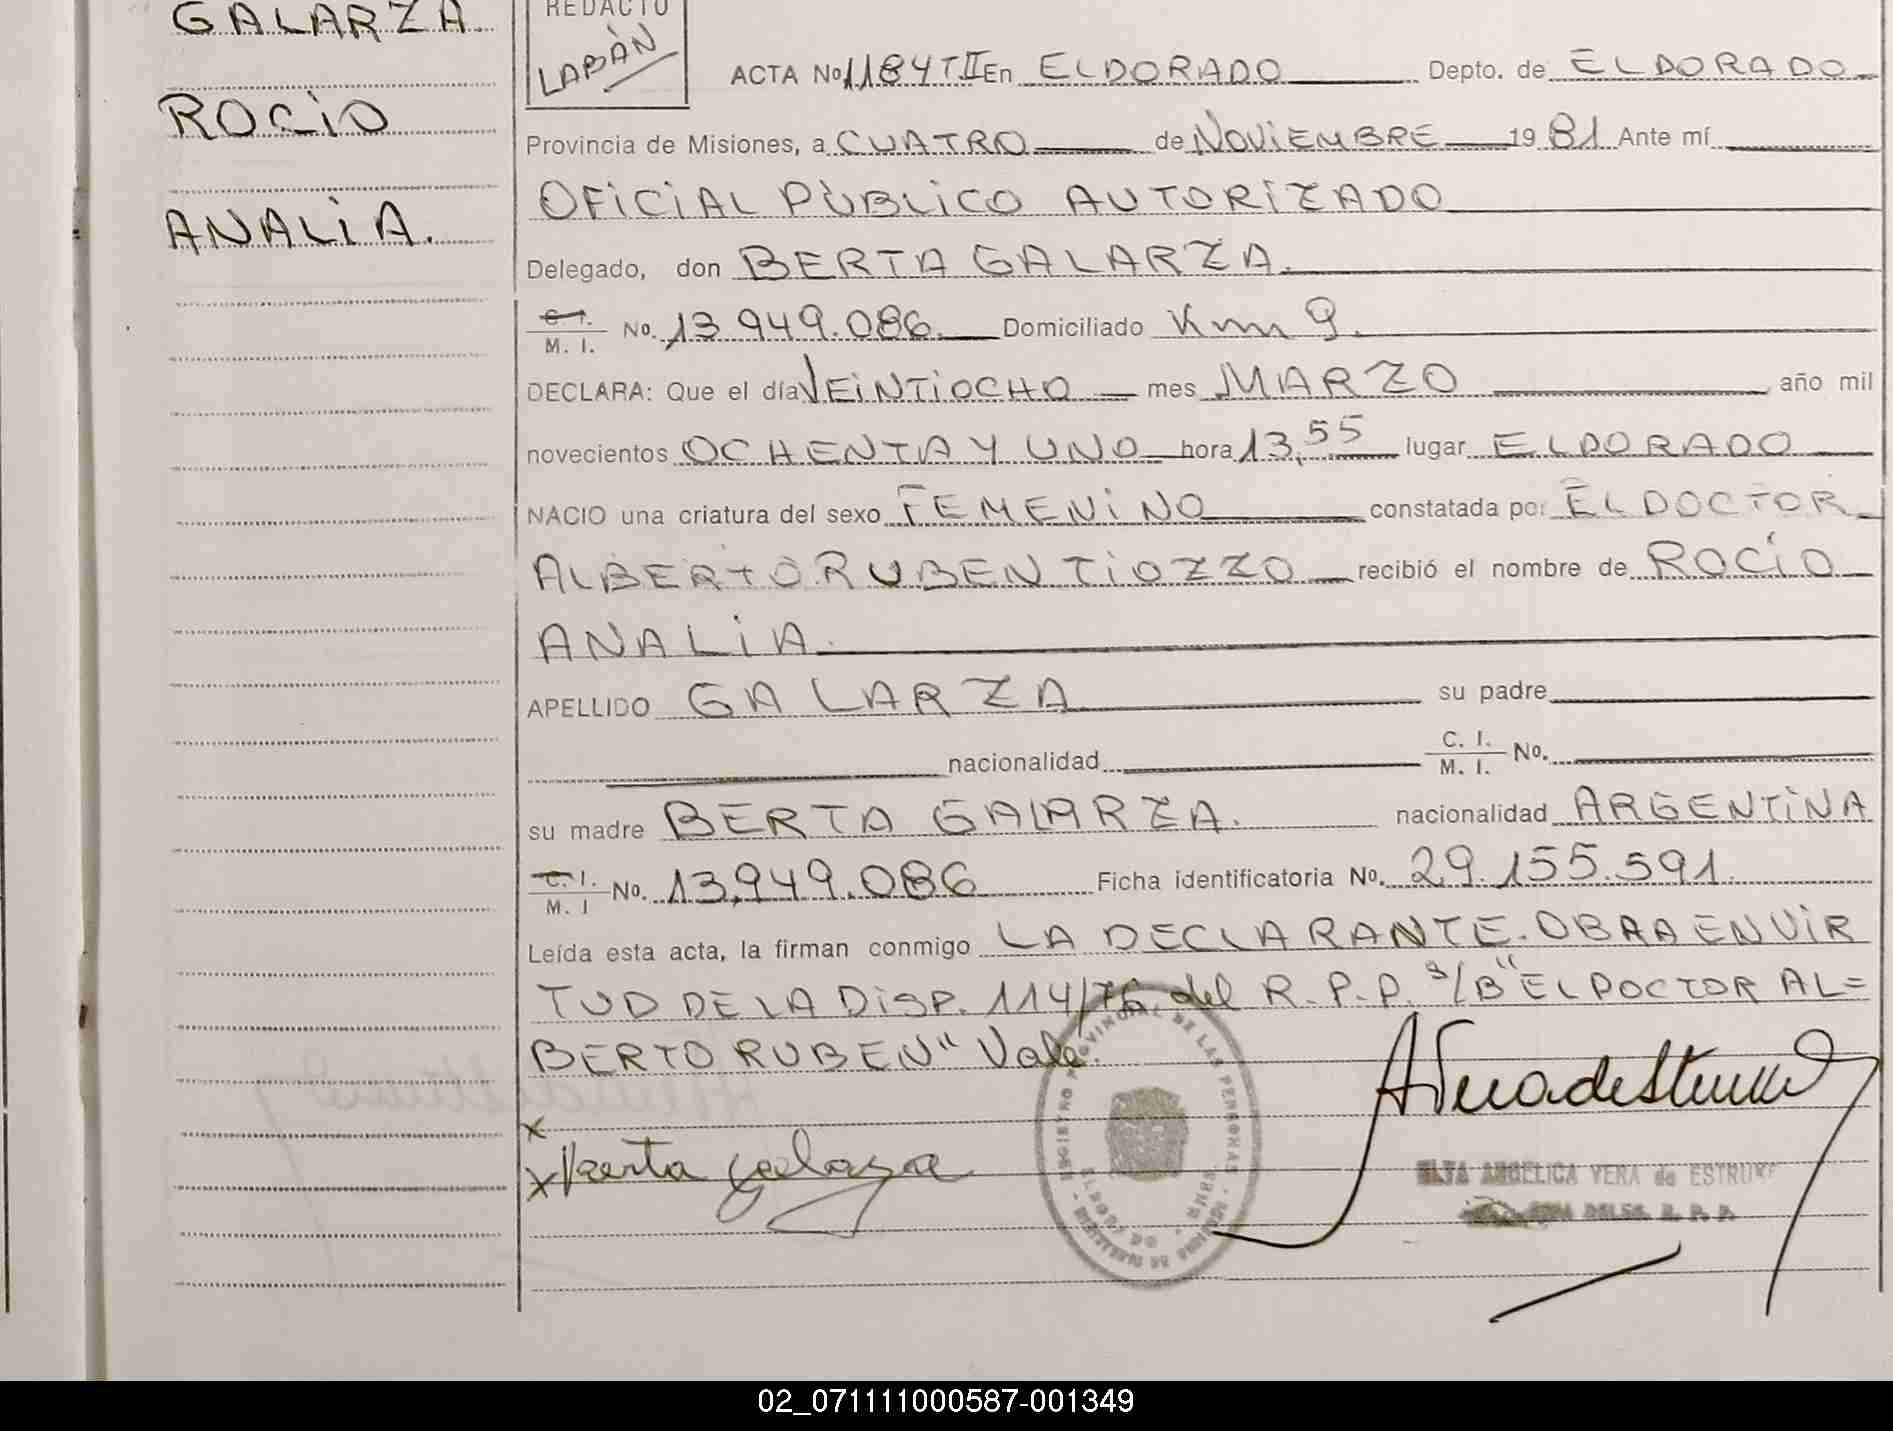 GALARZA
ROCIO
ANALIA.
REDACTO
LABÁN
ACTA No 1184 TII En ELDORADO Depto. de ELDORADO
Provincia de Misiones, a CUATRO de NOVIEMBRE 19 81 Ante mí
OFICIAL PÚBLICO AUTORIZADO
Delegado, don BERTA GALARZA.
C. I. / M. I. No. 13.949.086. Domiciliado Km 9.
DECLARA: Que el día VEINTIOCHO mes MARZO año mil
novecientos OCHENTA Y UNO hora 13,55 lugar ELDORADO
NACIO una criatura del sexo FEMENINO constatada por EL DOCTOR
ALBERTO RUBEN TIOZZO recibió el nombre de ROCÍO
ANALIA.
APELLIDO GALARZA su padre
nacionalidad C. I. / M. I. No.
su madre BERTA GALARZA. nacionalidad ARGENTINA
C. I. / M. I No. 13,949.086 Ficha identificatoria No. 29.155.591.
Leída esta acta, la firman conmigo LA DECLARANTE. OBRA EN VIR
TUD DE LA DISP. 114/76. del R. P. P. S/B "EL DOCTOR AL=
BERTO RUBEN" Vale.
x
x Berta Galarza
REGISTRO PROVINCIAL DE LAS PERSONAS
ANGELICA VERA de
R. P. P.
02_071111000587-001349